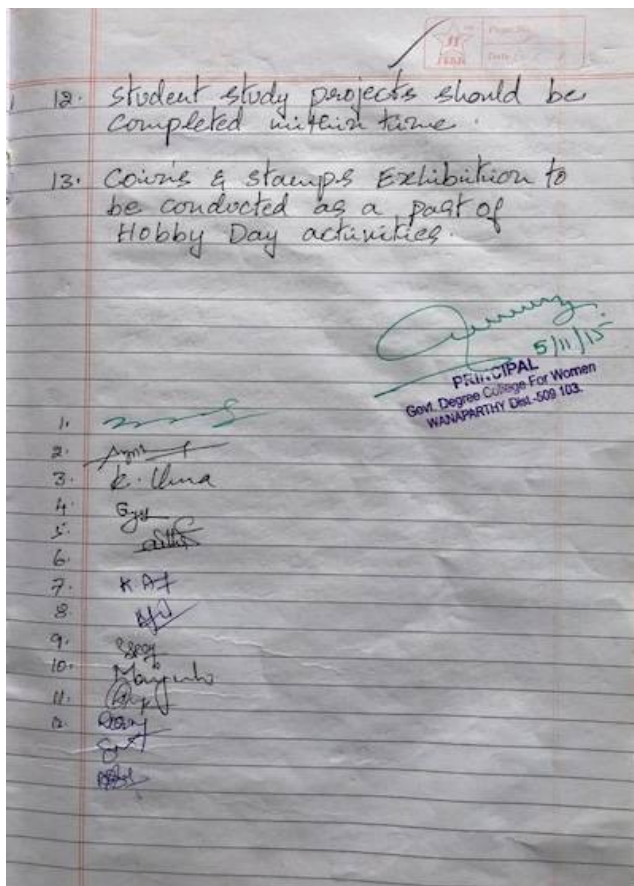 Page No.
Date
12. Student study projects should be
completed within time.
13. Coins & stamps Exhibition to
be conducted as a part of
Hobby Day activities.
5/11/15
PRINCIPAL
Govt. Degree College For Women
WANAPARTHY Dist.-509 103.
1.
2.
3. K. Uma
4.
5.
6.
7.
8.
9.
10. Manjula
11.
12.